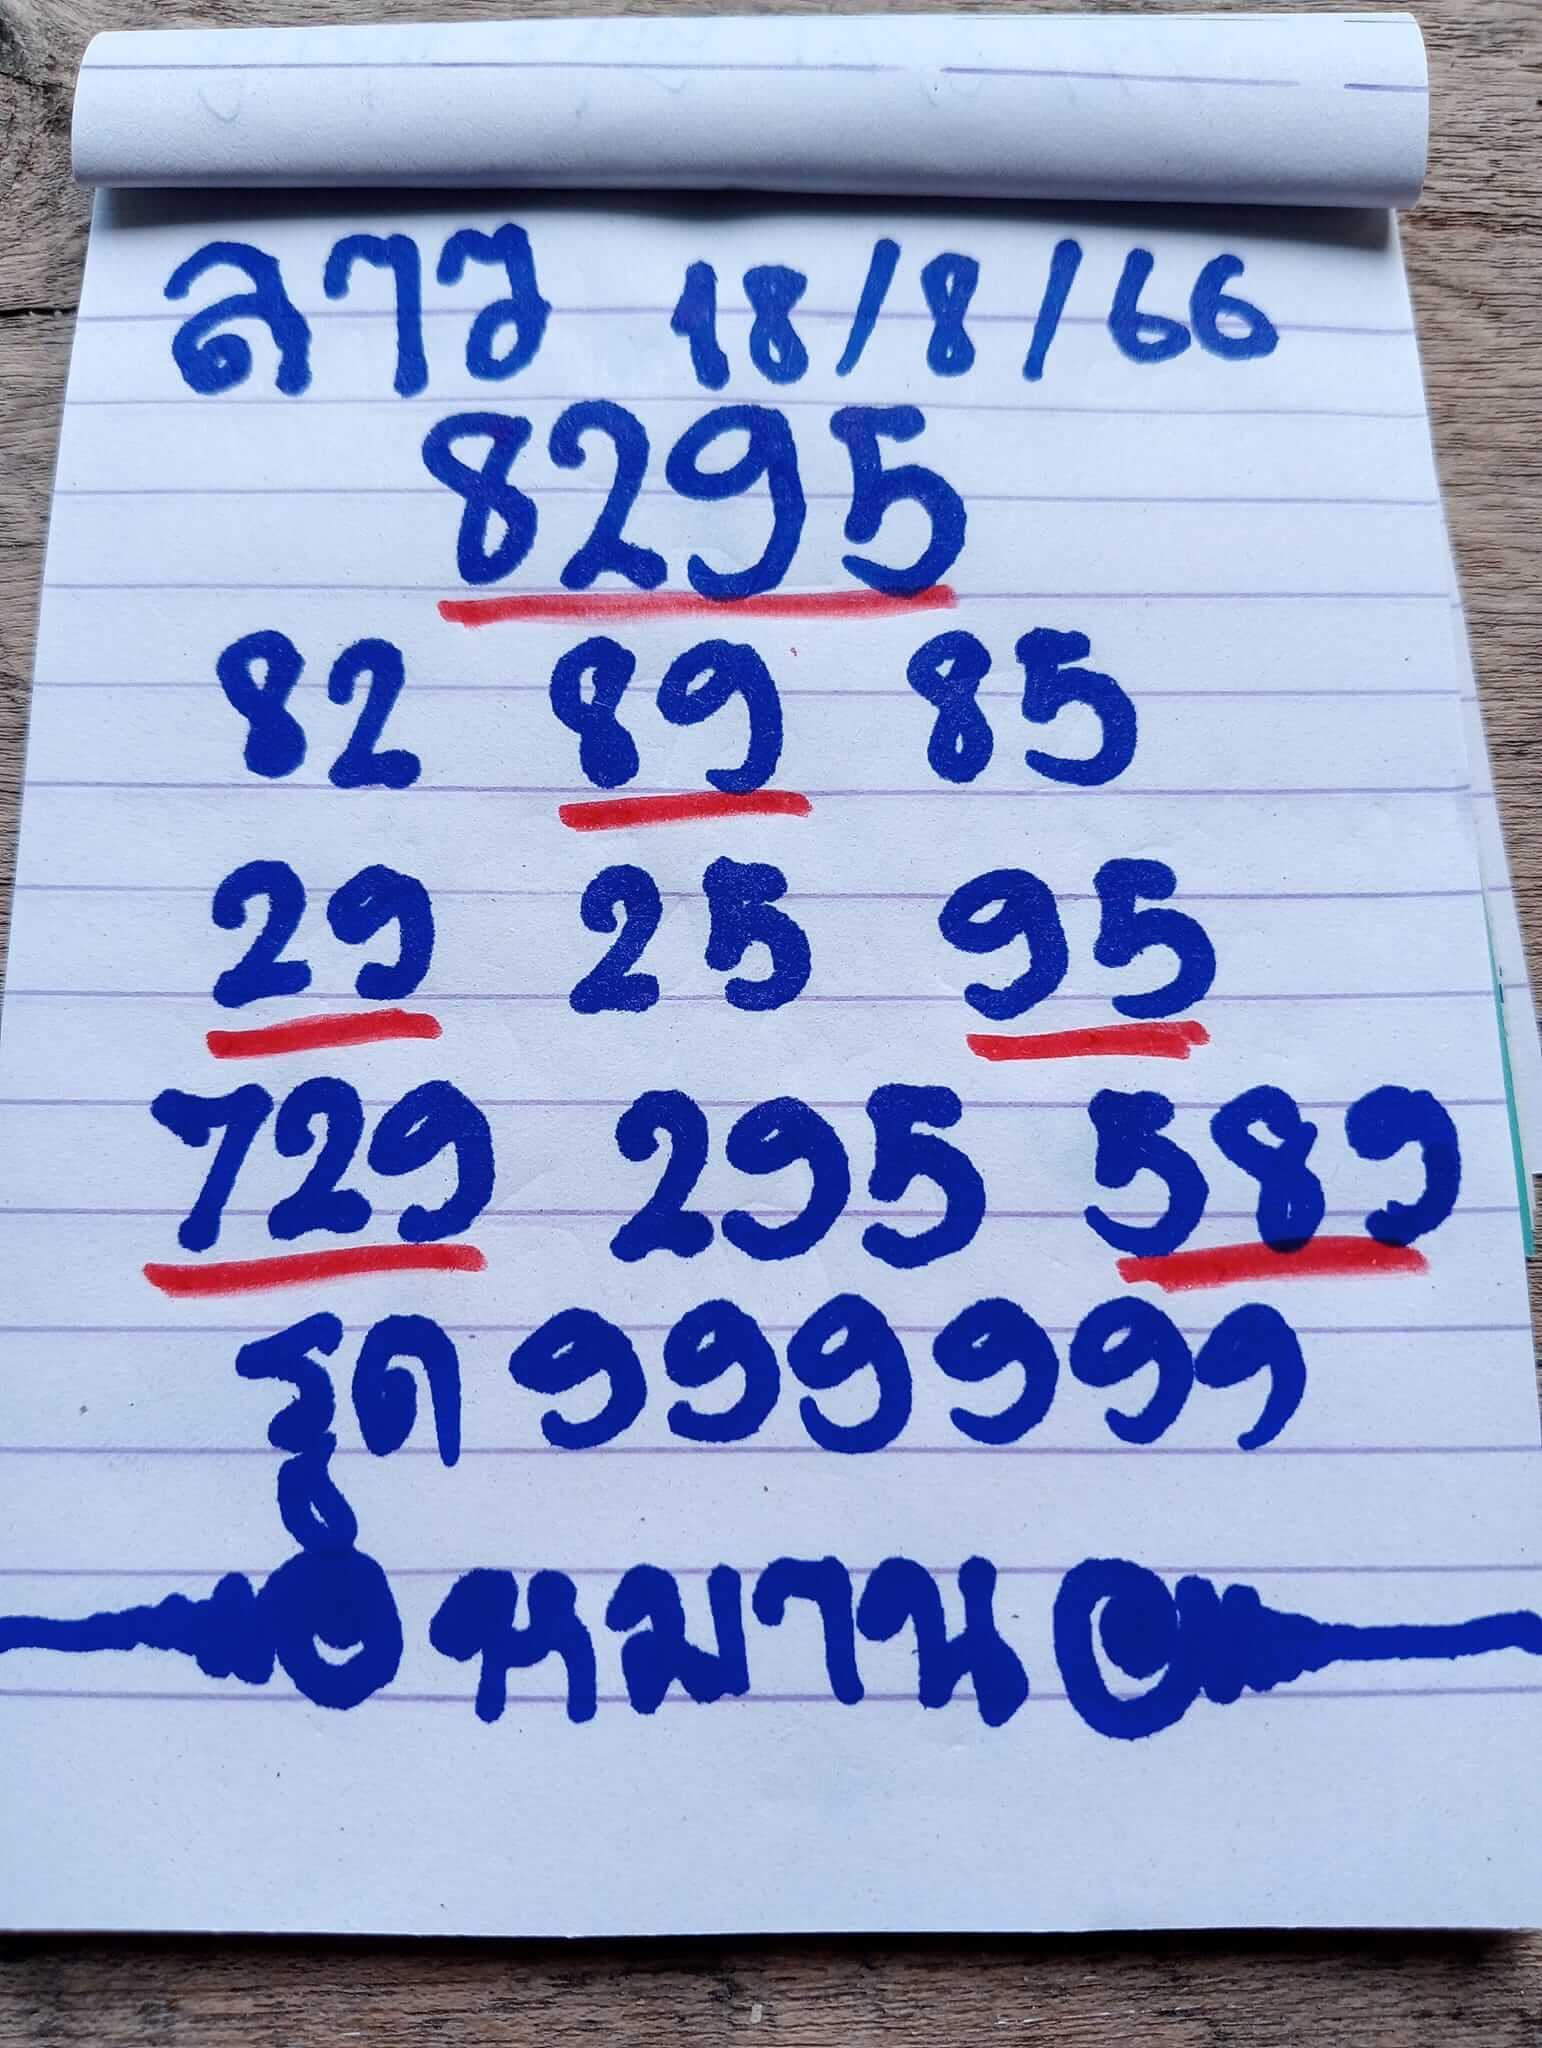 ลาว 18/8/66
8295
82 89 85
29 25 95
729 295 589
รูด 999999
หมาน